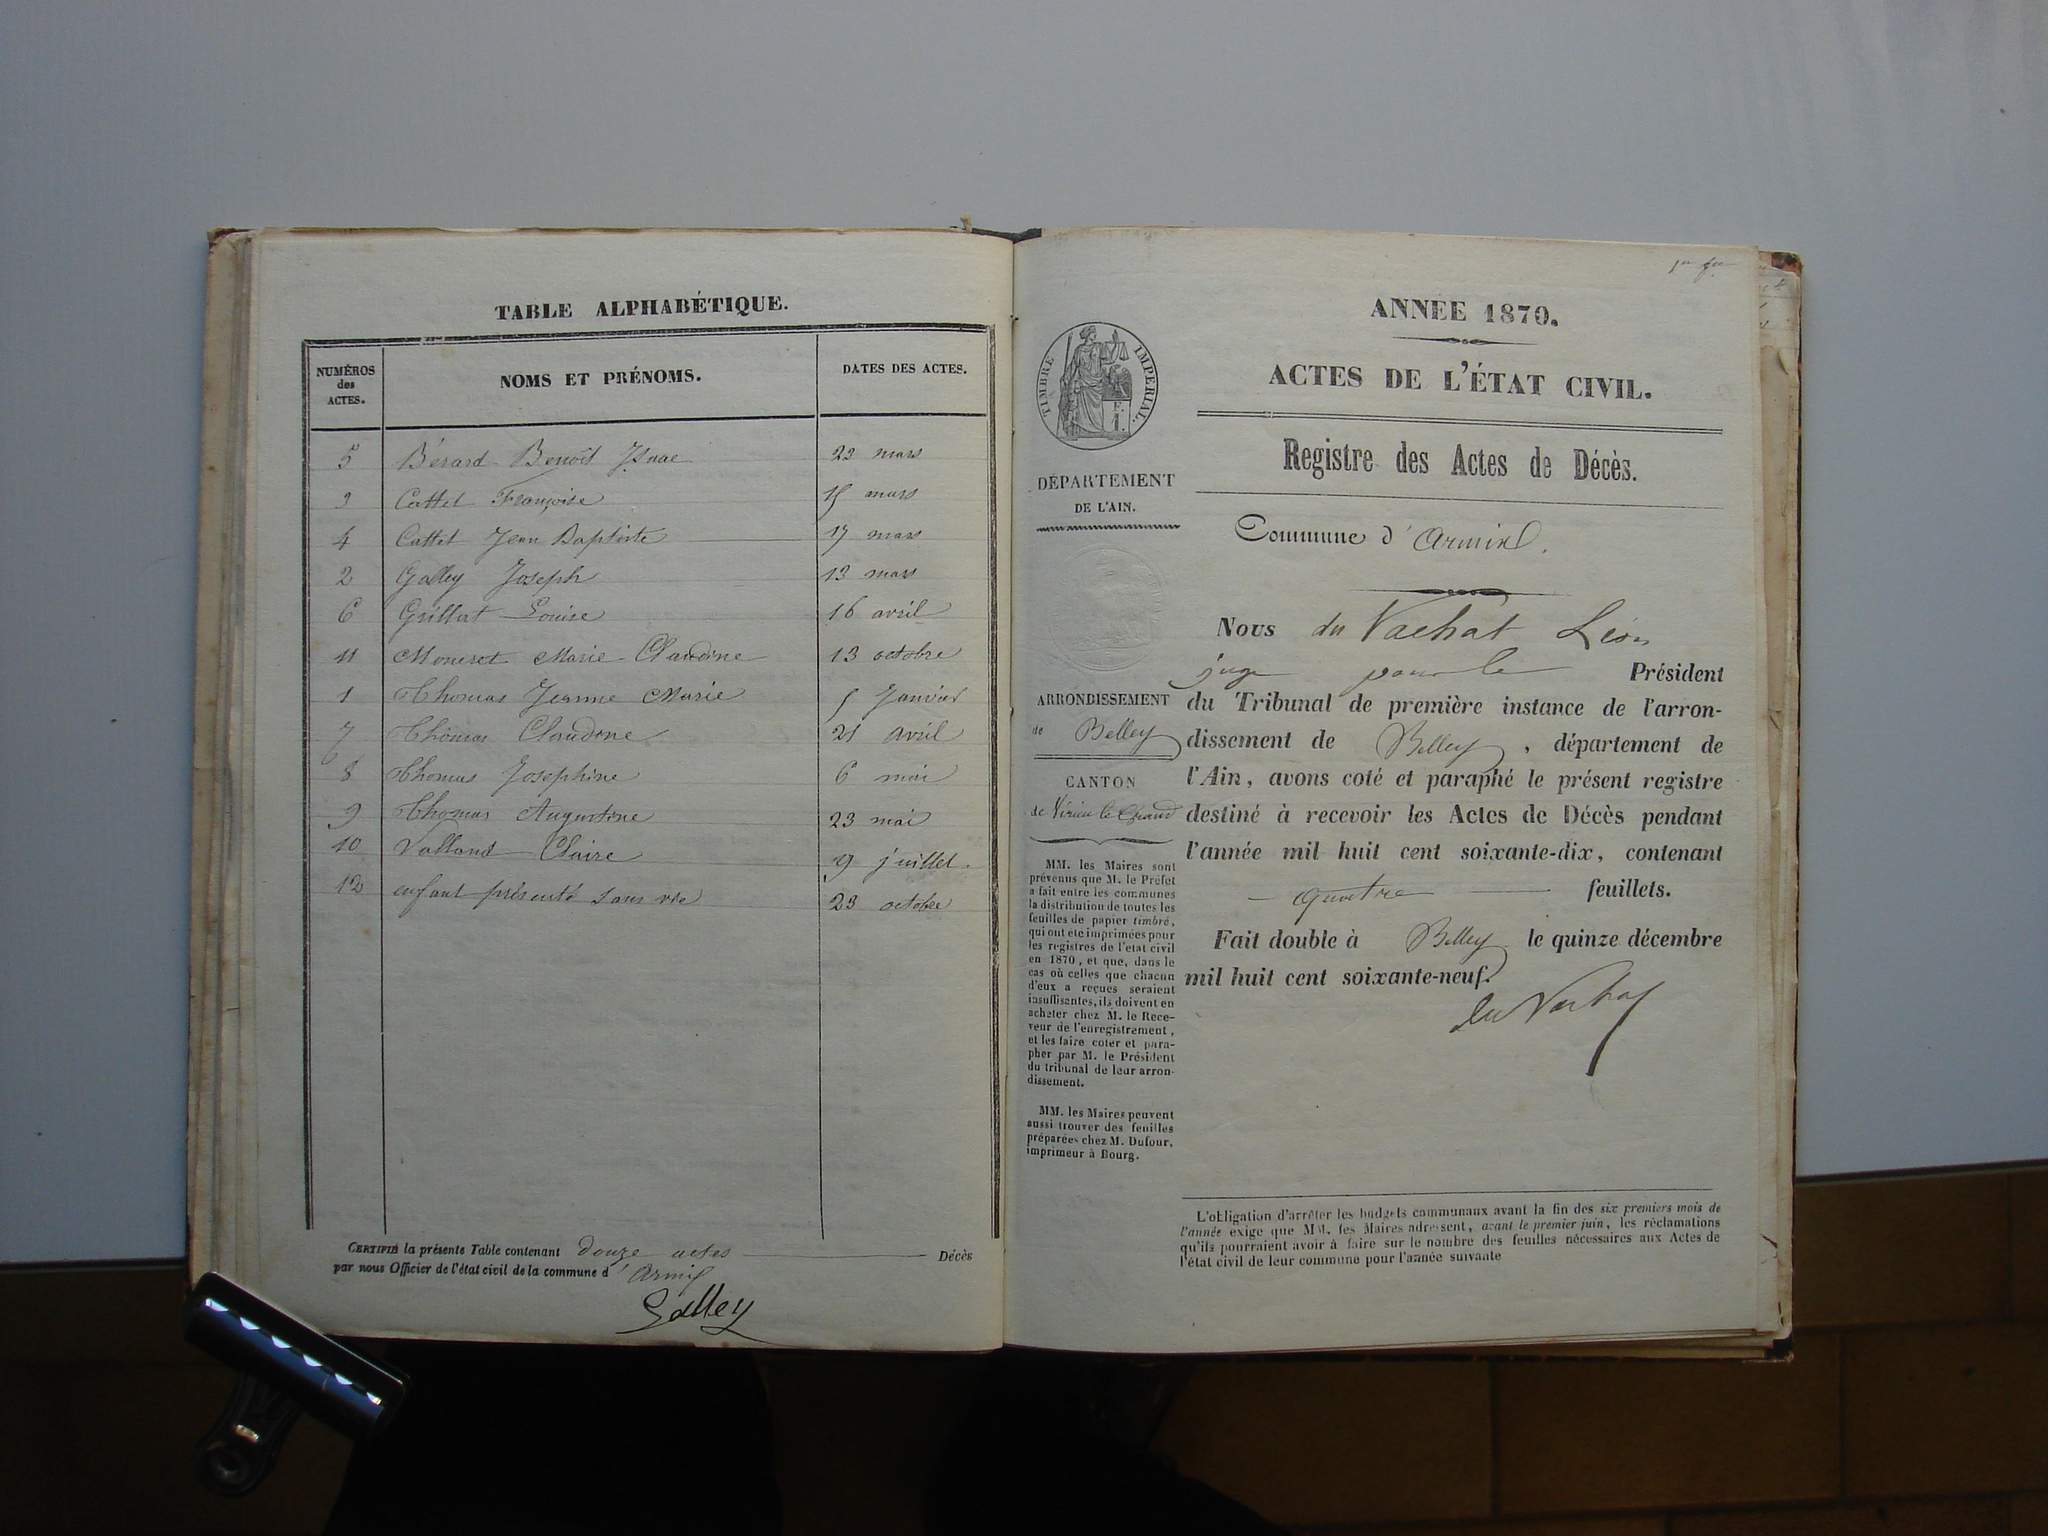 TABLE ALPHABÉTIQUE.
NUMÉROS
des
ACTES.
NOMS ET PRÉNOMS.
DATES DES ACTES.
5 Bérard Benoît Isaac 22 mars
3 Cattet Françoise 15 mars
4 Cattet Jean Baptiste 17 mars
2 Galley Joseph 13 mars
6 Grillat Louise 16 avril
11 Moneret Marie Claudine 13 octobre
1 Thomas Jeanne Marie 5 Janvier
7 Thomas Claudine 21 avril
8 Thomas Josephine 6 mai
9 Thomas Augustine 23 mai
10 Valland Claire 9 juillet.
12 enfant présenté sans vie 23 octobre
CERTIFIÉ la présente Table contenant douze actes Décès
par nous Officier de l'état civil de la commune d' Armix
Galley
ANNÉE 1870.
ACTES DE L'ÉTAT CIVIL.
Registre des Actes de Décès.
Commune d'Armix.
Nous du Vachat Léon
juge pour le Président
du Tribunal de première instance de l'arron-
dissement de Belley, département de
l'Ain, avons coté et paraphé le présent registre
destiné à recevoir les Actes de Décès pendant
l'année mil huit cent soixante-dix, contenant
quatre feuillets.
Fait double à Belley le quinze décembre
mil huit cent soixante-neuf.
du Vachat
TIMBRE IMPERIAL.
F.
1.
DÉPARTEMENT
DE L'AIN.
ARRONDISSEMENT
de Belley
CANTON
de Virieu le Grand
MM. les Maires sont
prévenus que M. le Préfet
a fait entre les communes
la distribution de toutes les
feuilles de papier timbré,
qui ont été imprimées pour
les registres de l'état civil
en 1870, et que, dans le
cas où celles que chacun
d'eux a reçues seraient
insuffisantes, ils doivent en
acheter chez M. le Rece-
veur de l'enregistrement,
et les faire coter et para-
pher par M. le Président
du tribunal de leur arron-
dissement.
MM. les Maires peuvent
aussi trouver des feuilles
préparées chez M. Dufour,
imprimeur à Bourg.
L'obligation d'arrêter les budgets communaux avant la fin des six premiers mois de
l'année exige que MM. les Maires adressent, avant le premier juin, les réclamations
qu'ils pourraient avoir à faire sur le nombre des feuilles nécessaires aux Actes de
l'état civil de leur commune pour l'année suivante